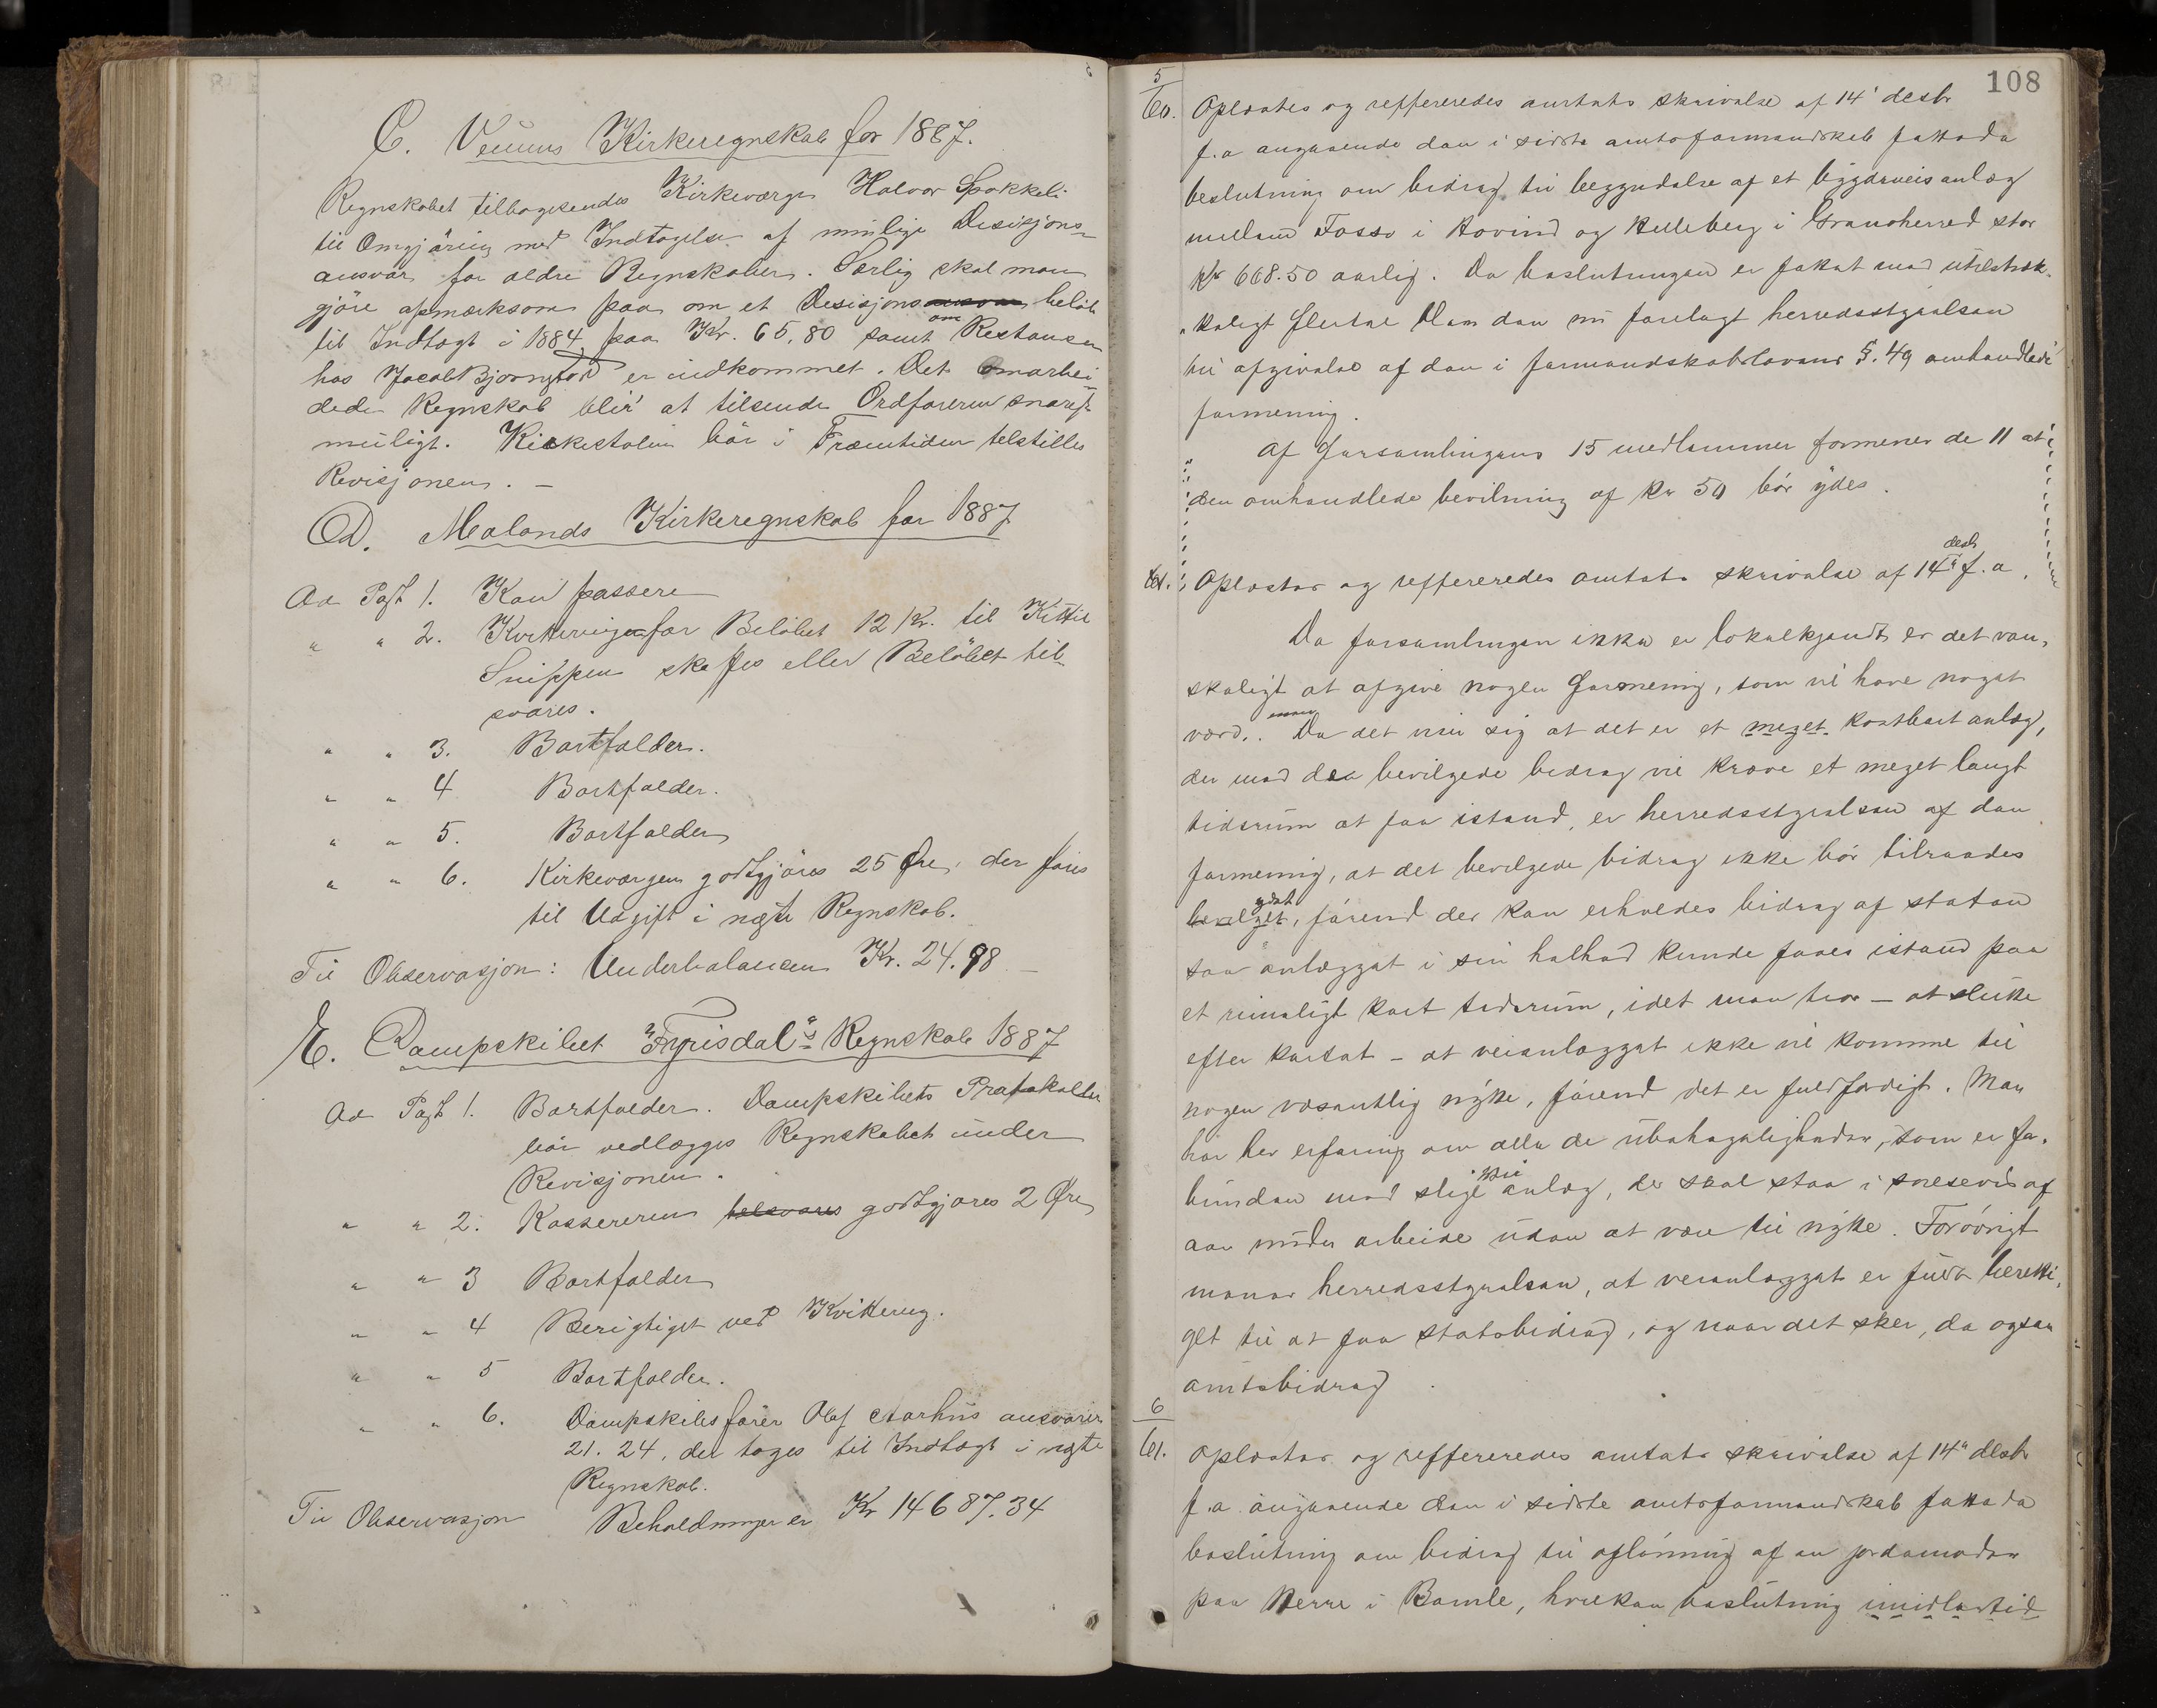 C. Veums Kirkeregnskab for 1887.
Regnskabet tilbagesendes Kirkeværge Halvor Spokkeli
til Omgjöring med Indtagelse af mulige Desisjons-
ansvar for ældre Regnskaber. Særlig skal man
gjöre opmærksom paa om et Desisjons ansvar belöb
til Indtægt i 1884 paa Kr. 65,80 samt om Restansen
hos Jacob Bjoonstad er indkommet. Det omarbei-
dede Regnskab blir at tilsende Ordföreren snarest
muligt. Kirkestolen bör i Fremtiden telstilles
Revisjonen. —
D. Molands Kirkeregnskab for 1887
Ad Post 1. Kan passere
" " 2. Kvitteringen for Belöbet 12 Kr. til Kittil
Snippen skaffes eller Belöbet til-
svares.
" " 3. Bortfalder.
" " 4 Bortfalder.
" " 5. Bortfalder
" " 6. Kirkeværgen godtgjöres 25 Öre, der föres
til Udgift i næste Regnskab.
Til Observasjon: Underbalansen Kr. 24.98 —
E. Dampskibet "Fyrisdal"s Regnskab 1887
Ad Post 1. Bortfalder. Dampskibets Protokoller
bör vedlægges Regnskabet under
Revisjonen.
" " 2. Kassereren telsvares godtgjöres 2 Öre
" " 3 Bortfalder
" " 4 Berigtiget ved Kvittering.
" " 5 Bortfalder.
" " 6. Dampskibsförer Olaf Aarhus ansvarer
21.24, der tages til Indtægt i næste
Regnskab.
Til Observasjon Beholdningen er Kr 14687.34
108
5
60. Oplæstes og reffereredes amtets skrivelse af 14' desbr
f.a angaaende den i sidste amtsformandskab fattede
beslutning om bidrag til begyndelse af et bygdeveisanlæg
mellem Fosso i Hovind og Kulleberg i Granoherred stor
Kr 668.50 aarlig. Da beslutningen er fattet med utilstræk-
keligt flertal blev den nu forelagt herredsstyrelsen
til afgivelse af den i formandskabslovens §. 49 omhandlede
formening.
Af Forsamlingens 15 medlemmer formener de 11 at
den omhandlede bevilning af Kr 50 bör ydes.
61. Oplæstes og reffereredes amtets skrivelse af 14de desbr f.a.
Da forsamlingen ikke er lokalkjendt er det van-
skeligt at afgive nogen Formening, som vil have noget
værd. Da det viser sig at det er et meget kostbart anlæg,
der med den bevilgede bidrag vil kræve et meget langt
tidsrum at faa istand, er herredsstyrelsen af den
formening, at det bevilgede bidrag ikke bör tilraades
bevilget ydet, förend der kan erholdes bidrag af staten
saa anlægget i sin helhed kunde faaes istand paa
et rimeligt kort tidsrum, idet man tror — at slutte
efter kartet — at veianlægget ikke vil komme til
nogen væsentlig nytte, förend det er fuldfærdigt. Man
har her erfaring om alle de ubehageligheder, som er for-
bunden med slige vei anlæg, der skal staa i snesevis af
aar under arbeide uden at være til nytte. Forövrigt
mener herredsstyrelsen, at veianlægget er fuldt beretti-
get til at faa statsbidrag, og naar det sker, da ogsaa
amtsbidrag.
6
61. Oplæstes og reffereredes amtets skrivelse af 14' desbr
f.a angaaende den i sidste amtsformandskab fattede
beslutning om bidrag til aflönning af en jordemoder
paa Herre i Bamle, hvilken beslutning imidlertid